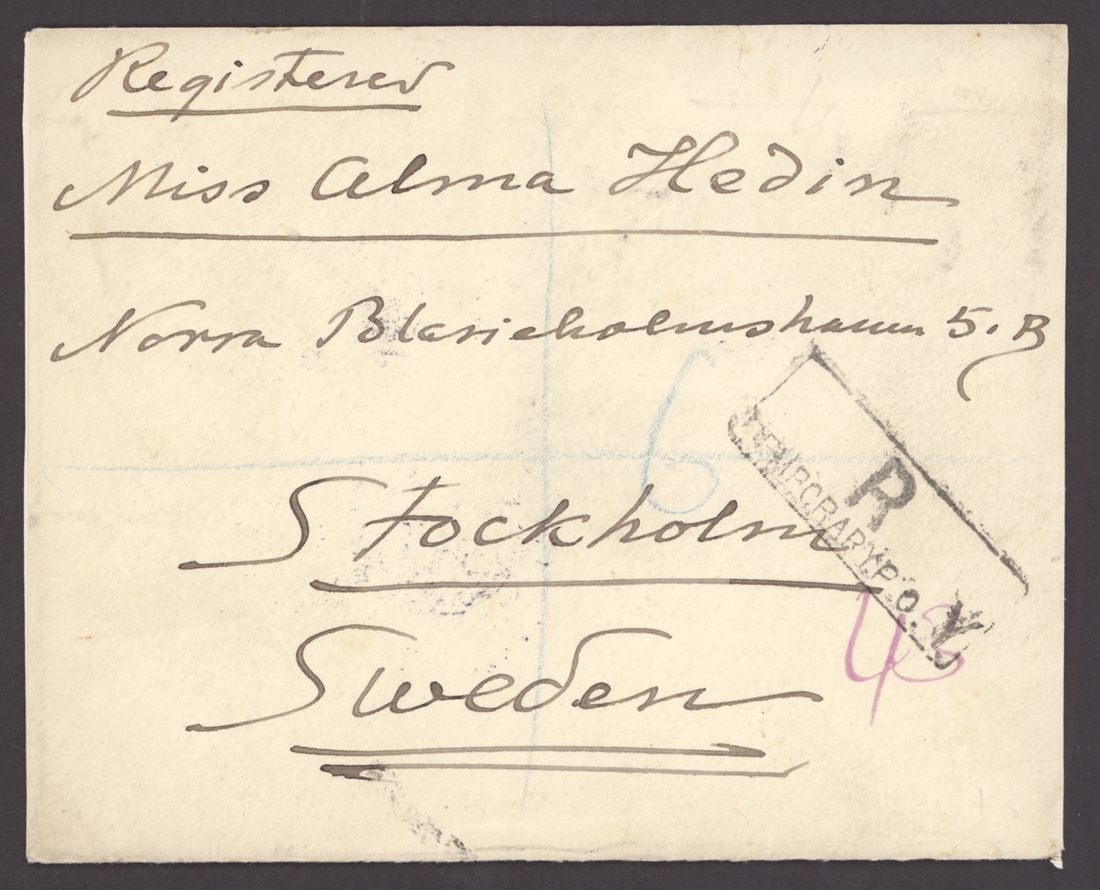 Registered
Miss Alma Hedin
Norra Blasieholmshamn 5. B
6
Stockholm
R
TEMPORARY P.O. V
43
Sweden